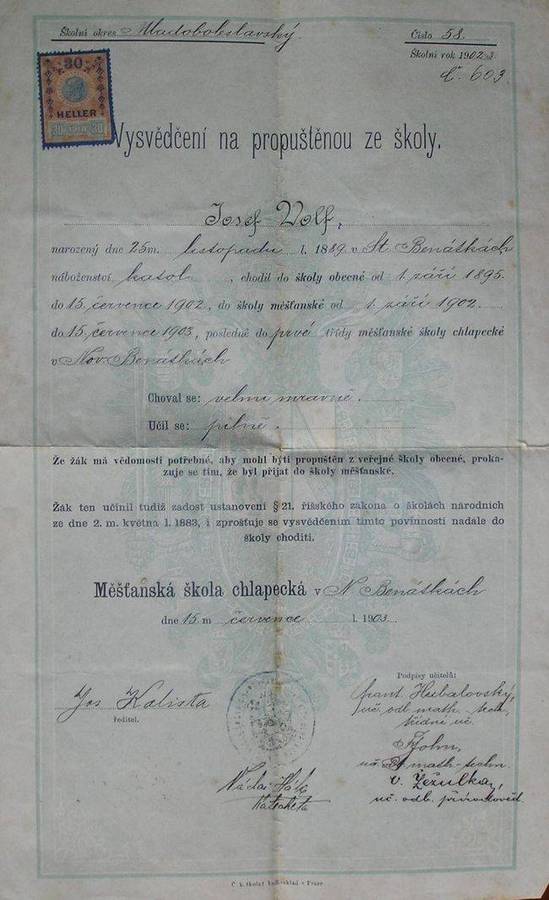 Školní okres Mladoboleslavský.
Číslo 58.
Školní rok 1902/3
Č. 603
30
HELLER
30 30
Vysvědčení na propuštěnou ze školy.
Josef Volf,
narozený dne 25m. listopadu l. 1889 v St. Benátkách
náboženství katol. , chodil do školy obecné od 1. září 1895.
do 15. července 1902, do školy měšťanské od 1. září 1902.
do 15. července 1903, posledně do prvé třídy měšťanské školy chlapecké
v Nov. Benátkách
Choval se: velmi mravně.
Učil se: pilně.
Že žák má vědomosti potřebné, aby mohl býti propuštěn z veřejné školy obecné, proka-
zuje se tím, že byl přijat do školy měšťanské.
Žák ten učinil tudíž zadost ustanovení § 21. říšského zákona o školách národních
ze dne 2. m. května l. 1883, i zprošťuje se vysvědčením tímto povinnosti nadále do
školy choditi.
Měšťanská škola chlapecká v N. Benátkách
dne 15. m července l. 1903.
Podpisy učitelů:
Jos Kalista
ředitel.
Frant Hubálovský,
uč. odb. math. tech.
třídní uč.
John,
math-techn.
V. Žežulka,
uč. odb. přírodověd.
Katecheta
C. k. školní knihosklad v Praze